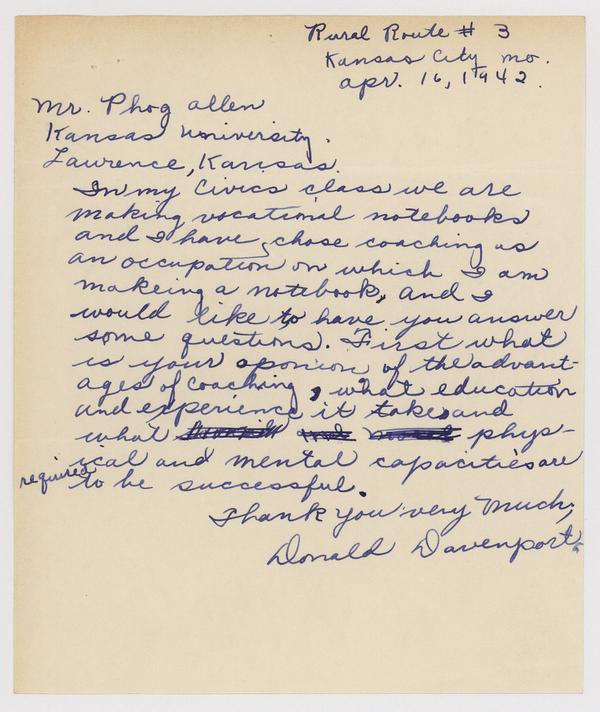 Rural Route # 3
Kansas City mo.
apr. 16, 1942.
Mr. Phog allen
Kansas University.
Lawrence, Kansas.
In my Civics class we are
making vocational notebooks
and I have chose coaching as
an occupation on which I am
makeing a notebook, and I
would like to have you answer
some questions. First what
is your oponion of the advant-
ages of coaching, what education
and experience it takes and
what phys-
ical and mental capacities are
required to be successful.
Thank you very Much,
Donald Davenport.